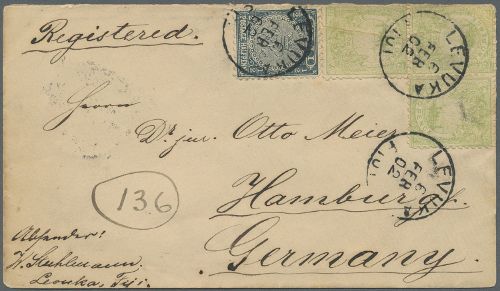 Registered.
LEVUKA
6
FEB
02
FIJI
LEVUKA
6
FEB
02
FIJI
LEVUKA
6
FEB
02
Herrn
Dr. jur. Otto Meier
Hamburg.
Germany.
136
Absender:
Levuka, Fiji.